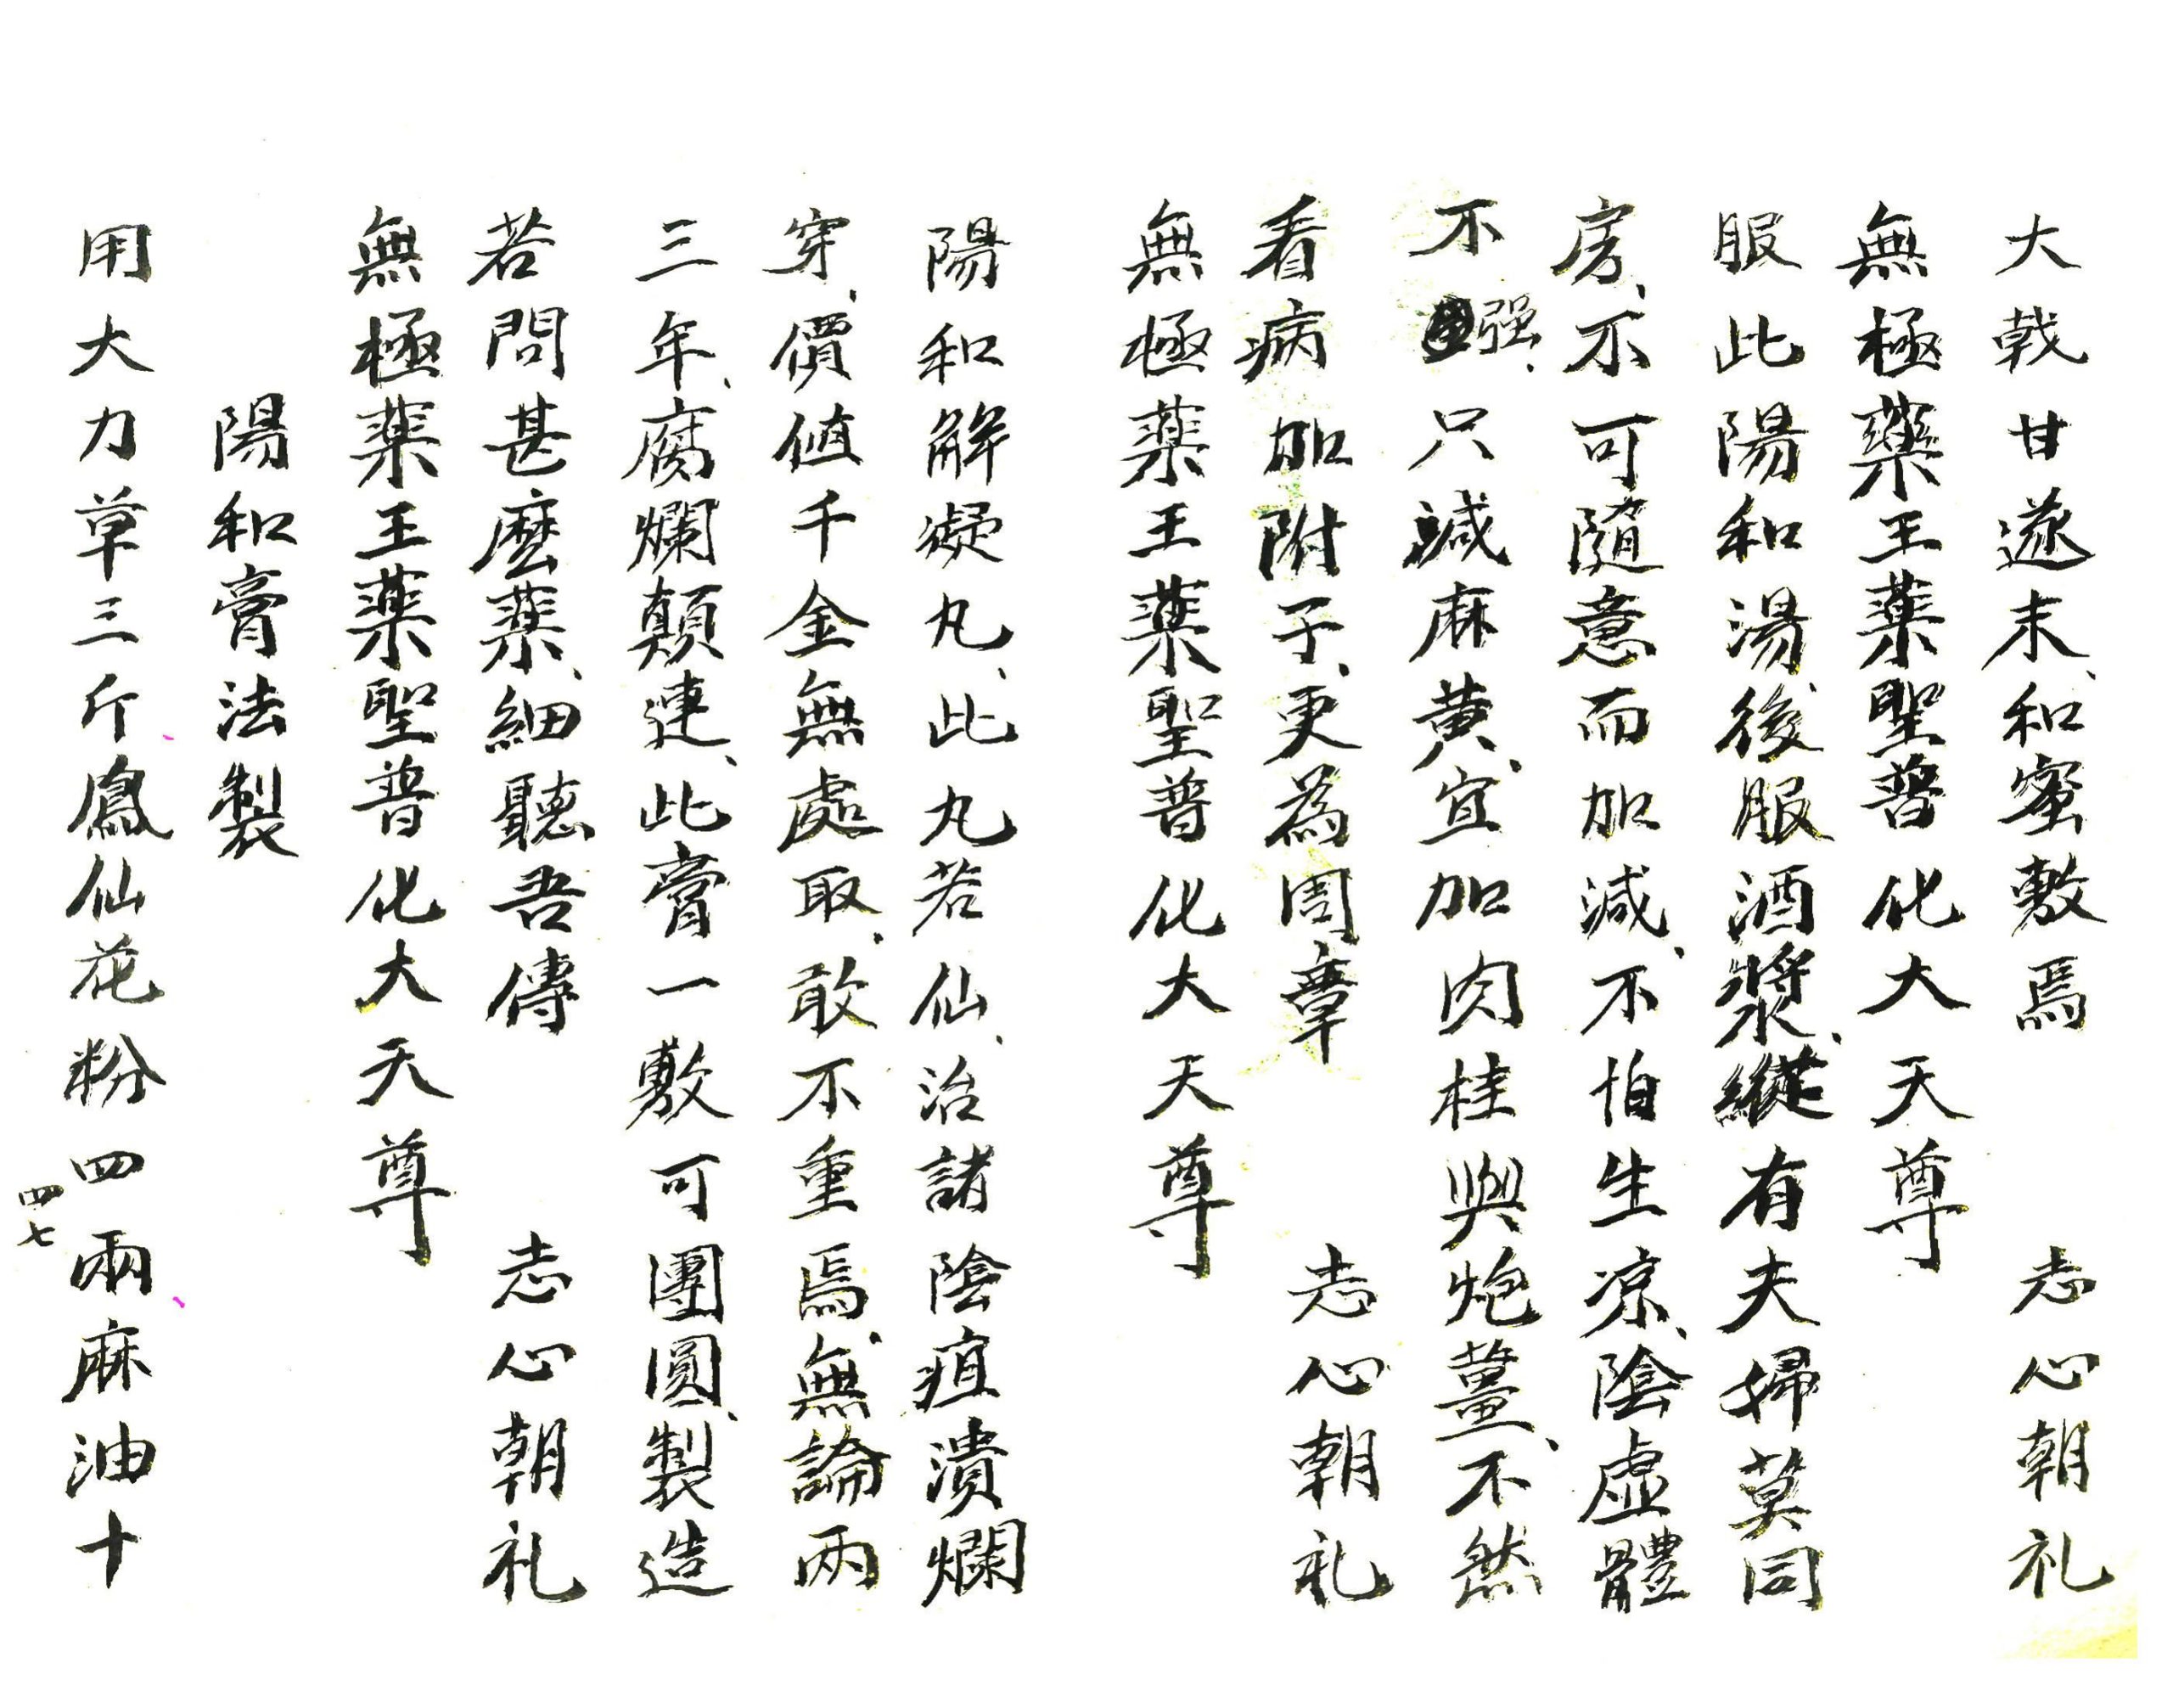 大戟甘遂末、和蜜敷焉　志心朝礼
無極藥王薬聖普化大天尊
服此陽和湯後服酒漿、縱有夫婦莫同
房、不可隨意而加減、不怕生凉、陰虛體
不强、只減麻黄、宜加肉桂與炮薑、不然
看病加附子、更為周章　志心朝礼
無極薬王薬聖普化大天尊
陽和解凝丸、此丸若仙、治諸陰疽潰爛
穿、價值千金無處取、敢不重焉、無論兩
三年、腐爛顛連、此膏一敷可團圓、製造
若問甚麽薬、細聽吾傳　志心朝礼
無極薬王薬聖普化大天尊
陽和膏法製
用大力草三斤鳳仙花粉四兩麻油十
四七